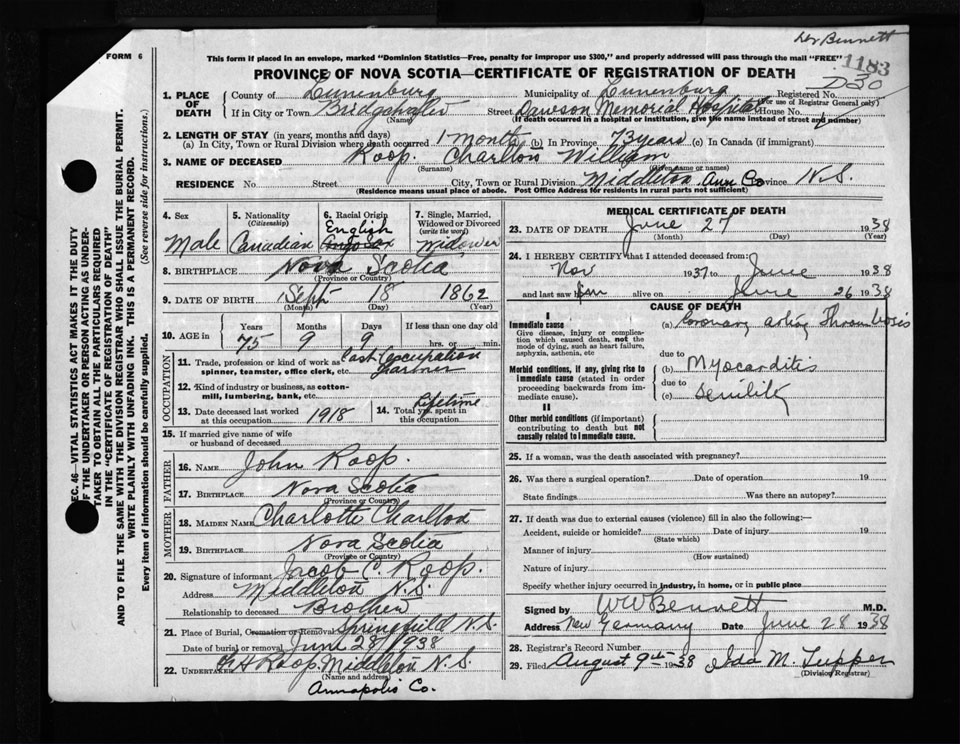 Dr Bennett
1183
D30
FORM 6
This form if placed in an envelope, marked "Dominion Statistics—Free, penalty for improper use $300," and properly addressed will pass through the mail "FREE"
PROVINCE OF NOVA SCOTIA—CERTIFICATE OF REGISTRATION OF DEATH
SEC. 46—VITAL STATISTICS ACT MAKES IT THE DUTY
OF THE UNDERTAKER OR PERSON ACTING AS UNDER-
TAKER TO OBTAIN ALL THE PARTICULARS REQUIRED
IN THE "CERTIFICATE OF REGISTRATION OF DEATH"
AND TO FILE THE SAME WITH THE DIVISION REGISTRAR WHO SHALL ISSUE THE BURIAL PERMIT.
WRITE PLAINLY WITH UNFADING INK. THIS IS A PERMANENT RECORD.
Every item of information should be carefully supplied. (See reverse side for instructions.)
1. PLACE OF DEATH County of Lunenburg Municipality of Lunenburg Registered No.
(For use of Registrar General only)
If in City or Town Bridgewater Street Dawson Memorial Hospital House No.
(Name) (If death occurred in a hospital or institution, give the name instead of street and number)
2. LENGTH OF STAY (in years, months and days)
(a) In City, Town or Rural Division where death occurred 1 month (b) In Province 73 years (c) In Canada (if immigrant)
3. NAME OF DECEASED Roop, Charlton William
(Surname) (Given name or names)
RESIDENCE No. Street City, Town or Rural Division Middleton Ann Co Province N.S.
(Residence means usual place of abode. Post Office Address for residents in rural parts not sufficient)
4. Sex Male
5. Nationality (Citizenship) Canadian
6. Racial Origin English
7. Single, Married, Widowed or Divorced (write the word) Widower
8. BIRTHPLACE Nova Scotia
(Province or Country)
9. DATE OF BIRTH Sept 18 1862
(Month) (Day) (Year)
10. AGE in Years Months Days If less than one day old
75 9 9 hrs. or min.
OCCUPATION
11. Trade, profession or kind of work as spinner, teamster, office clerk, etc. Last Occupation
12. Kind of industry or business, as cotton-mill, lumbering, bank, etc.
13. Date deceased last worked at this occupation 1918
14. Total yrs. spent in this occupation Lifetime
15. If married give name of wife or husband of deceased
FATHER
16. NAME John Roop.
17. BIRTHPLACE Nova Scotia
(Province or Country)
MOTHER
18. MAIDEN NAME Charlotte Charlton
19. BIRTHPLACE Nova Scotia
(Province or Country)
20. Signature of informant Jacob C. Roop.
Address Middleton N.S.
Relationship to deceased Brother
21. Place of Burial, Cremation or Removal Springfield N.S.
Date of burial or removal June 28/1938
22. UNDERTAKER Roop, Middleton N.S.
(Name and address)
Annapolis Co.
MEDICAL CERTIFICATE OF DEATH
23. DATE OF DEATH June 27 1938
(Month) (Day) (Year)
24. I HEREBY CERTIFY that I attended deceased from:
Nov 1937 to June 1938
and last saw him alive on June 26 1938
CAUSE OF DEATH
I
Immediate cause
Give disease, injury or complication which caused death, not the mode of dying, such as heart failure, asphyxia, asthenia, etc
(a) Coronary artery Thrombosis
due to
Morbid conditions, if any, giving rise to immediate cause (stated in order proceeding backwards from immediate cause).
(b) Myocarditis
due to
(c) Senility
II
Other morbid conditions (if important) contributing to death but not causally related to immediate cause.
25. If a woman, was the death associated with pregnancy?
26. Was there a surgical operation? Date of operation 19
State findings Was there an autopsy?
27. If death was due to external causes (violence) fill in also the following:—
Accident, suicide or homicide? Date of injury 19
(State which)
Manner of injury
(How sustained)
Nature of injury
Specify whether injury occurred in industry, in home, or in public place
Signed by WW Bennett M.D.
Address New Germany Date June 28 1938
28. Registrar's Record Number
29. Filed August 9th 1938 Ida M. Tupper
(Division Registrar)